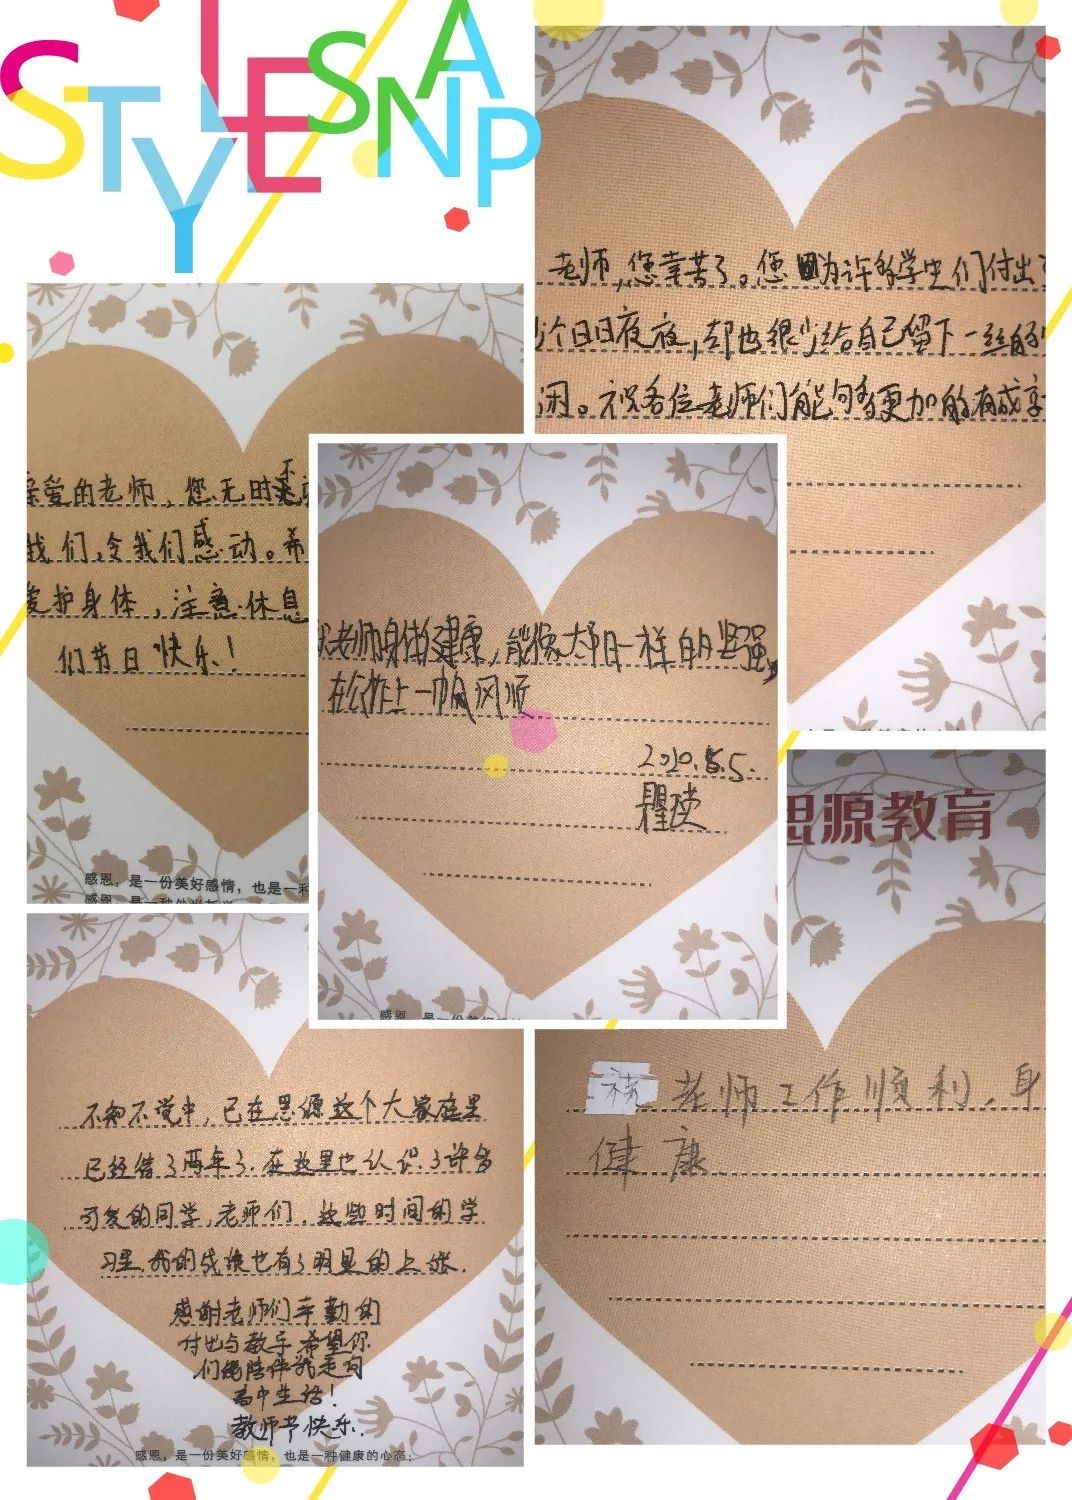 STYLE SNAP
老师,您辛苦了。您因为许多学生们付出了
少个日日夜夜,却也很少给自己留下一丝的
闲。祝各位老师们能够更加的有成
亲爱的老师,您无时不
我们,令我们感动。希
爱护身体,注意休息
们节日快乐!
感恩,是一份美好感情,也是一种
老师身体健康,能像太阳一样的坚强,
在工作上一帆风顺
2020.8.5.
感恩,是一份美好感情
思源教育
祝老师工作顺利,身
健康
不知不觉中,已在思源这个大家庭里
已经待了两年了.在这里也认识了许多
可爱的同学,老师们.这些时间的学
习里,我的成绩也有了明显的上涨.
感谢老师们辛勤的
付出与教导 希望你
们能陪伴我走向
高中生活!
教师节快乐.
感恩,是一份美好感情,也是一种健康的心态;